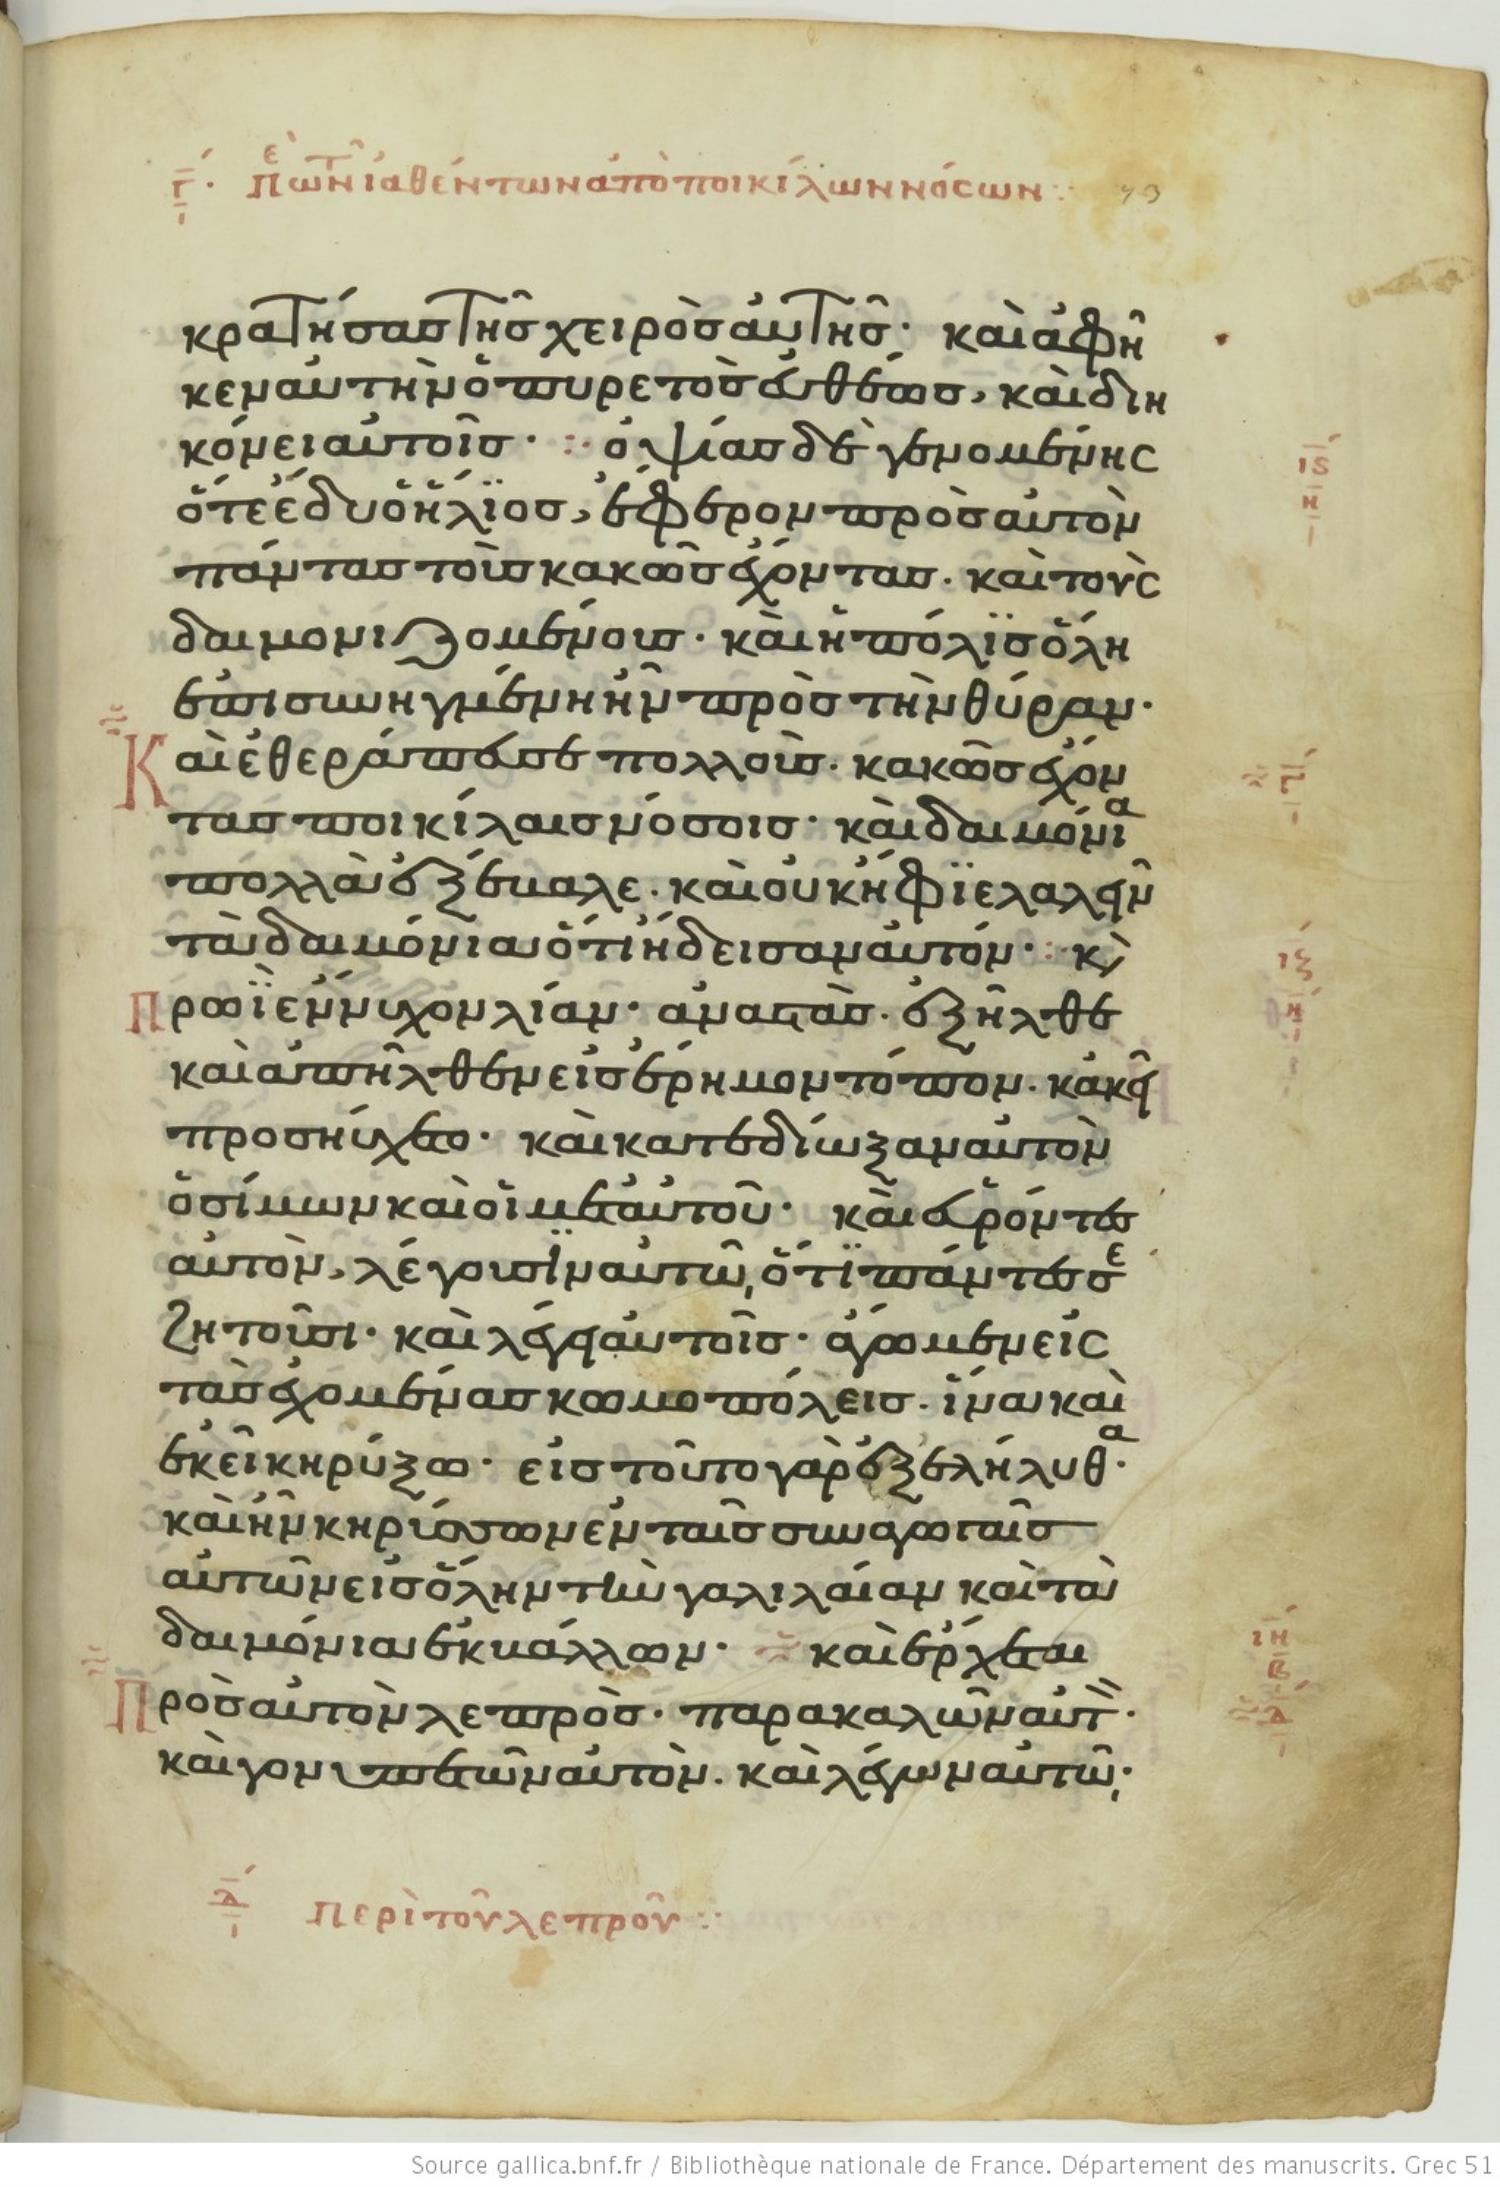 γ. Πε τῶν ἰαθέντων ἀπὸ ποικίλων νόσων
κρατήσας τῆς χειρὸς αὐτῆς· καὶ ἀφῆ
κεν αὐτὴν ὁ πυρετὸς εὐθέως, καὶ διη
κόνει αὐτοῖς· ὀψίας δὲ γενομένης
ὅτε ἔδυ ὁ ἥλϊος, ἔφερον πρὸς αὐτὸν
πάντας τοὺς κακῶς ἔχοντας. καὶ τοὺς
δαιμονιζομένους· καὶ ἡ πόλϊς ὅλη
ἐπισυνηγμένη ἦν πρὸς τὴν θύραν·
Καὶ ἐθεράπευσε πολλοὺς. κακῶς ἔχον
τας ποικίλαις νόσοις· καὶ δαιμόνια
πολλὰ ἐξέβαλε. καὶ οὐκ ἤφϊε λαλεῖν
τὰ δαιμόνια ὅτι ἤδεισαν αὐτόν· κὶ
Πρωῒ ἔννυχον λίαν· ἀναστὰς. ἐξῆλθε
καὶ ἀπῆλθεν εἰς ἔρημον τόπον. κἀκεῖ
προσηύχετο· καὶ κατεδίωξαν αὐτὸν
ὁ σίμων καὶ οἱ μετ αὐτοῦ· καὶ εὑρόντες
αὐτὸν, λέγουσϊν αὐτῷ, ὅτϊ πάντες σε
ζητοῦσι· καὶ λέγει αὐτοῖς· ἄγωμεν εἰς
τὰς ἐχομένας κωμοπόλεις. ἵνα καὶ
ἐκεῖ κηρύξω· εἰς τοῦτο γὰρ ἐξελήλυθα·
καὶ ἦν κηρύσσων ἐν ταῖς συναγωγαῖς
αὐτῶν εἰς ὅλην τὴν γαλιλαίαν καὶ τὰ
δαιμόνια ἐκβάλλων· καὶ ἔρχεται
Πρὸς αὐτὸν λεπρὸς· παρακαλῶν αὐτὸν·
καὶ γονυπετῶν αὐτὸν. καὶ λέγων αὐτῷ·
δ Περὶ τοῦ λεπροῦ
ις
η
γ
ιζ
η
ιη
β
δ
Source gallica.bnf.fr / Bibliothèque nationale de France. Département des manuscrits. Grec 51